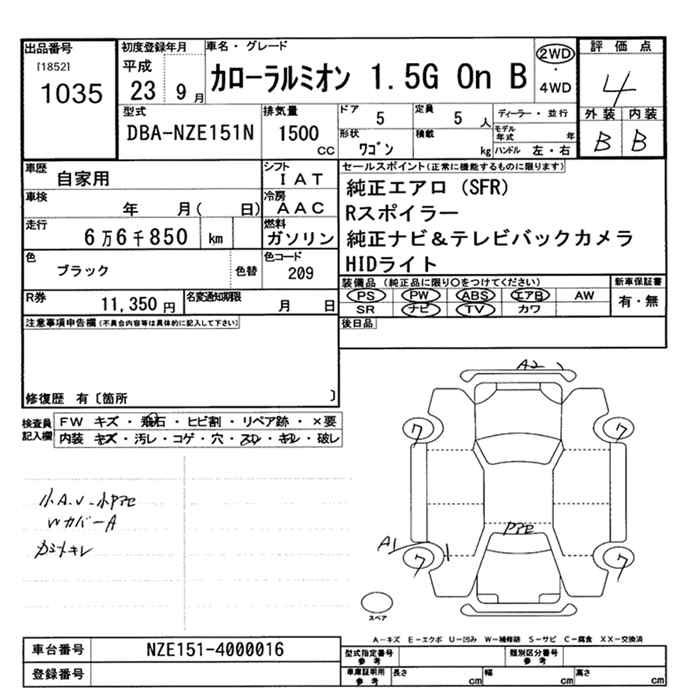 出品番号
[1852]
1035
初度登録年月
平成
23 9月
車名・グレード
カローラルミオン 1.5G On B
2WD
・
4WD
評価点
4
外装 内装
B B
型式
DBA-NZE151N
排気量
1500
CC
ドア
5
定員
5 人
ディーラー・並行
形状
ワゴン
積載
kg
モデル年式 年
ハンドル 左・右
車歴
自家用
シフト
IAT
車検
年 月( 日)
冷房
AAC
走行
6万6千850 km
燃料
ガソリン
色
ブラック
色替
色コード
209
R券
11,350円
名変通知期限
月 日
セールスポイント(正常に機能するものに限ります)
純正エアロ(SFR)
Rスポイラー
純正ナビ&テレビバックカメラ
HIDライト
装備品(純正品に限り○をつけてください)
PS PW ABS エアB AW
SR ナビ TV カワ
新車保証書
有・無
後日品
注意事項申告欄(不具合内容等は具体的に記入して下さい)
修復歴 有〔箇所 〕
検査員記入欄
FW キズ・飛石・ヒビ割・リペア跡・×要
内装 キズ・汚レ・コゲ・穴・スレ・キレ・破レ
小A.U-小PアE
WカバーA
A2
ワ ワ
PアE
A1
ワ ワ
スペア
A-キズ E-エクボ U-凹み W-補修跡 S-サビ C-腐食 XX-交換済
車台番号
NZE151-4000016
登録番号
型式指定番号
参考
類別区分番号
参考
車庫証明用
参考
長さ cm
幅 cm
高さ cm